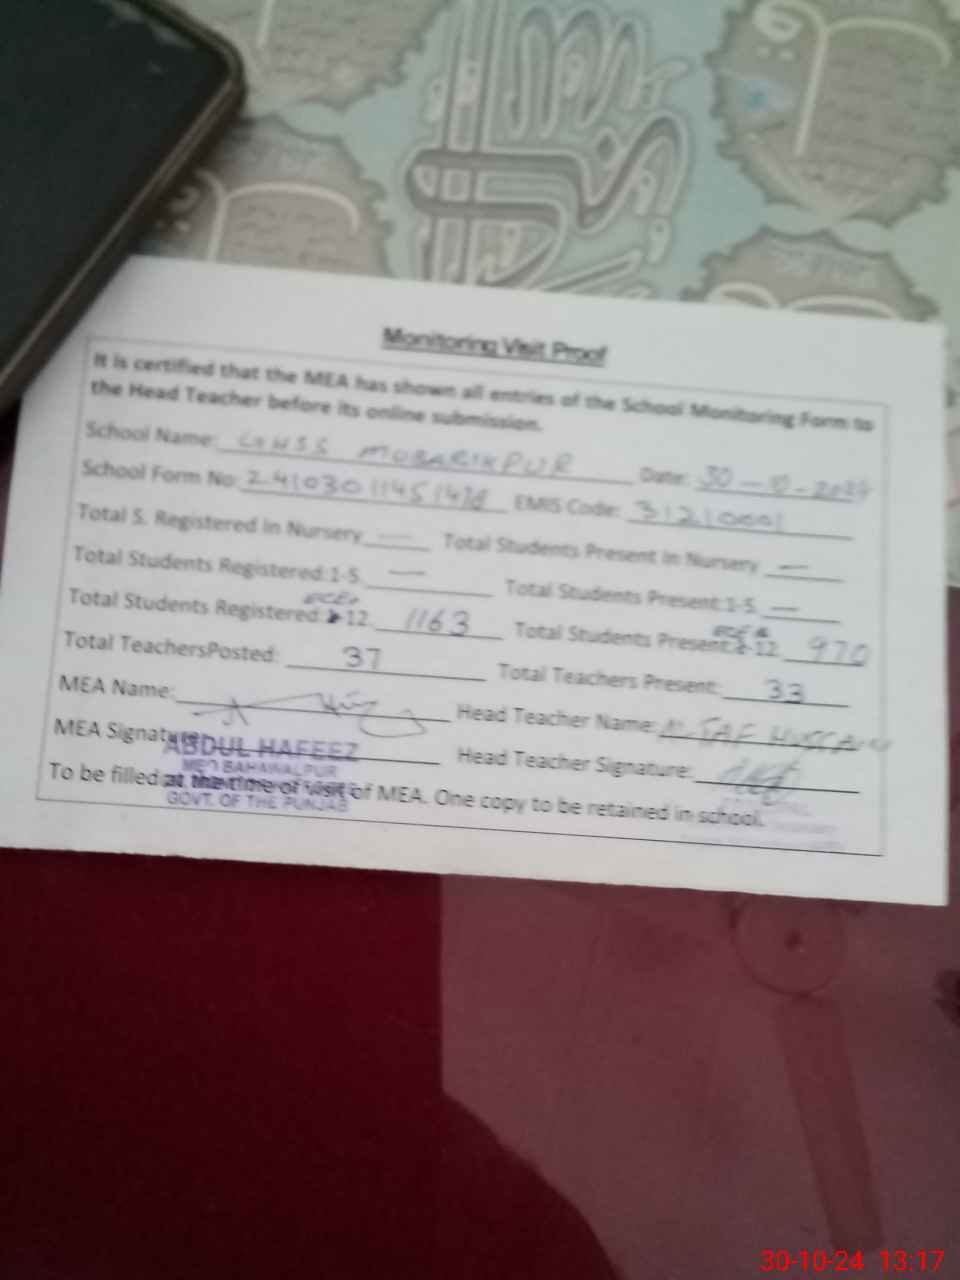 Monitoring Visit Proof
It is certified that the MEA has shown all entries of the School Monitoring Form to
the Head Teacher before its online submission.
School Name: GHSS MUBARIKPUR Date: 30-10-2024
School Form No: EMIS Code: 31210001
Total S. Registered In Nursery — Total Students Present In Nursery —
Total Students Registered:1-5. — Total Students Present:1-5. —
Total Students Registered: 12. 1163 Total Students Present: 12. 970
Total TeachersPosted: 37 Total Teachers Present: 33
MEA Name: Head Teacher Name: ALTAF HUSSAIN
MEA Signature: Head Teacher Signature:
ABDUL HAFEEZ
BAHAWALPUR
To be filled at the time of visit of MEA. One copy to be retained in school.
GOVT. OF THE PUNJAB
30-10-24 13:17